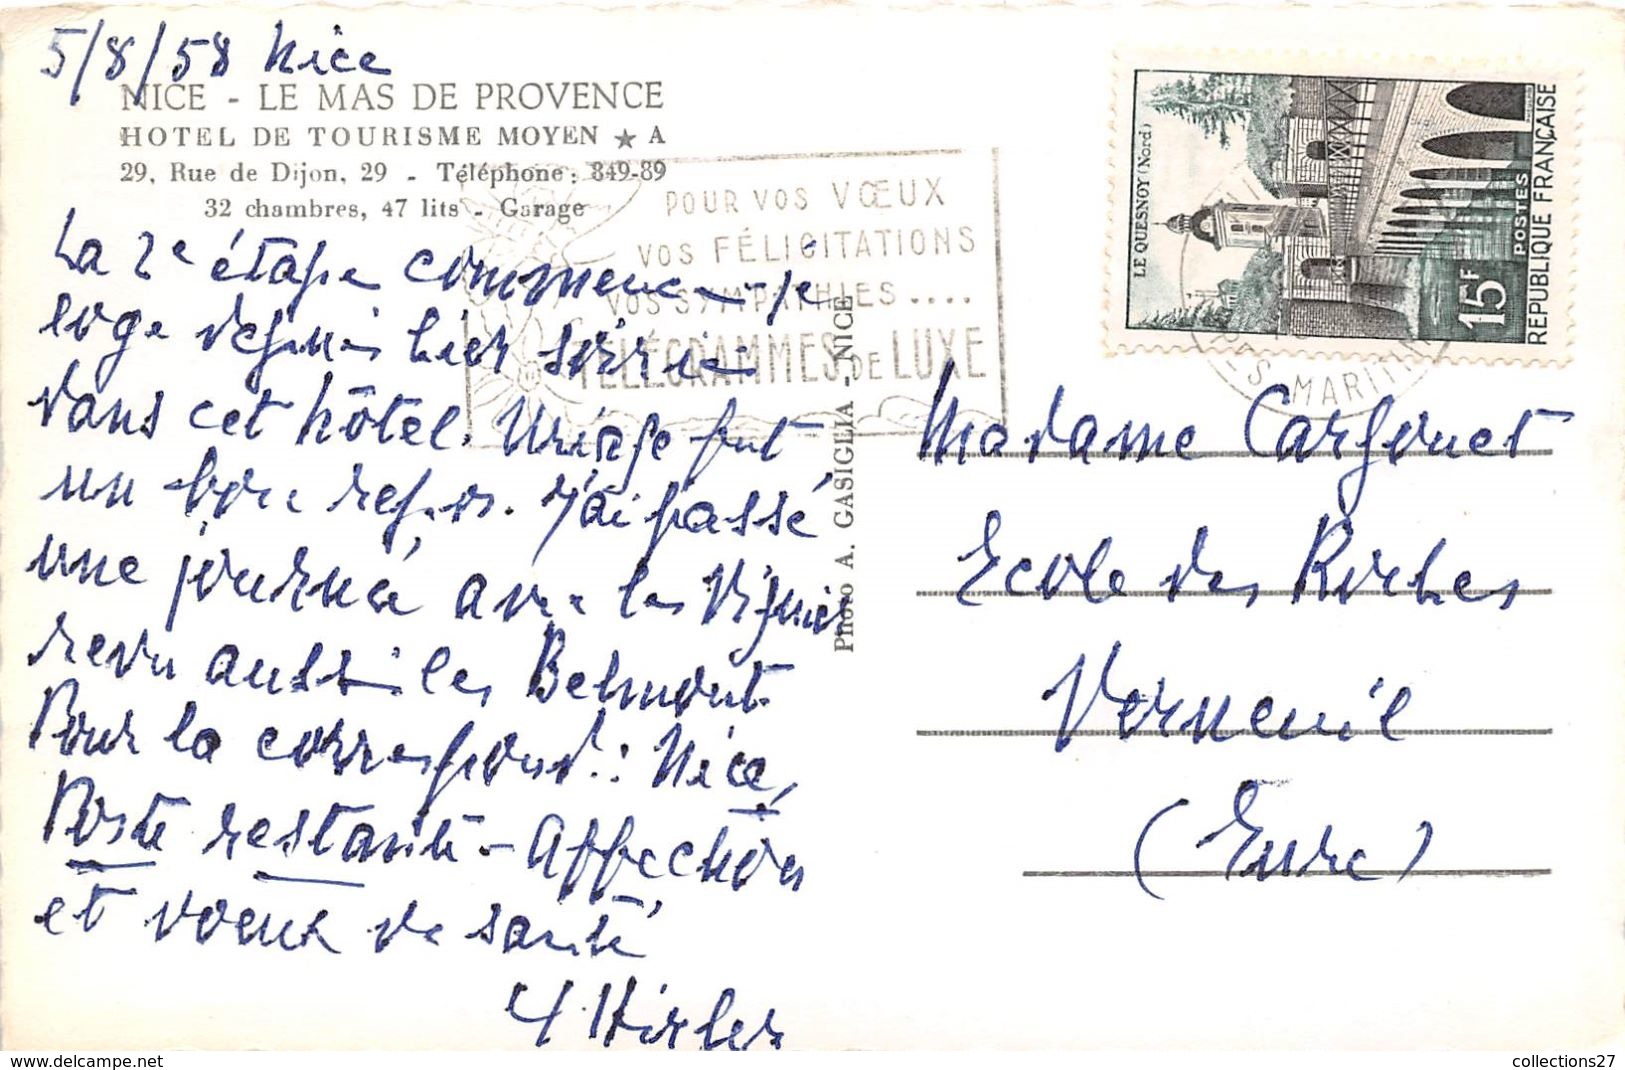 5/8/58 Nice
NICE - LE MAS DE PROVENCE
HOTEL DE TOURISME MOYEN ★ A
29, Rue de Dijon, 29 - Téléphone : 849-89
32 chambres, 47 lits - Garage
La 2e étape commence - je
loge depuis hier soir ici
dans cet hôtel. Uriage fut
un bon repos. J'ai passé
une journée avec les Viguier
revu aussi les Belmont.
Pour la correspond. : Nice,
Poste restante - Affection
et voeux de santé
POUR VOS VŒUX
VOS FÉLICITATIONS
VOS SYMPATHIES ....
TÉLÉGRAMMES DE LUXE
Photo A. GASIGLIA - NICE
LE QUESNOY (Nord)
15F
POSTES
REPUBLIQUE FRANÇAISE
MARITIMES
Madame Cargouet
Ecole des Roches
Verneuil
(Eure)
collections27